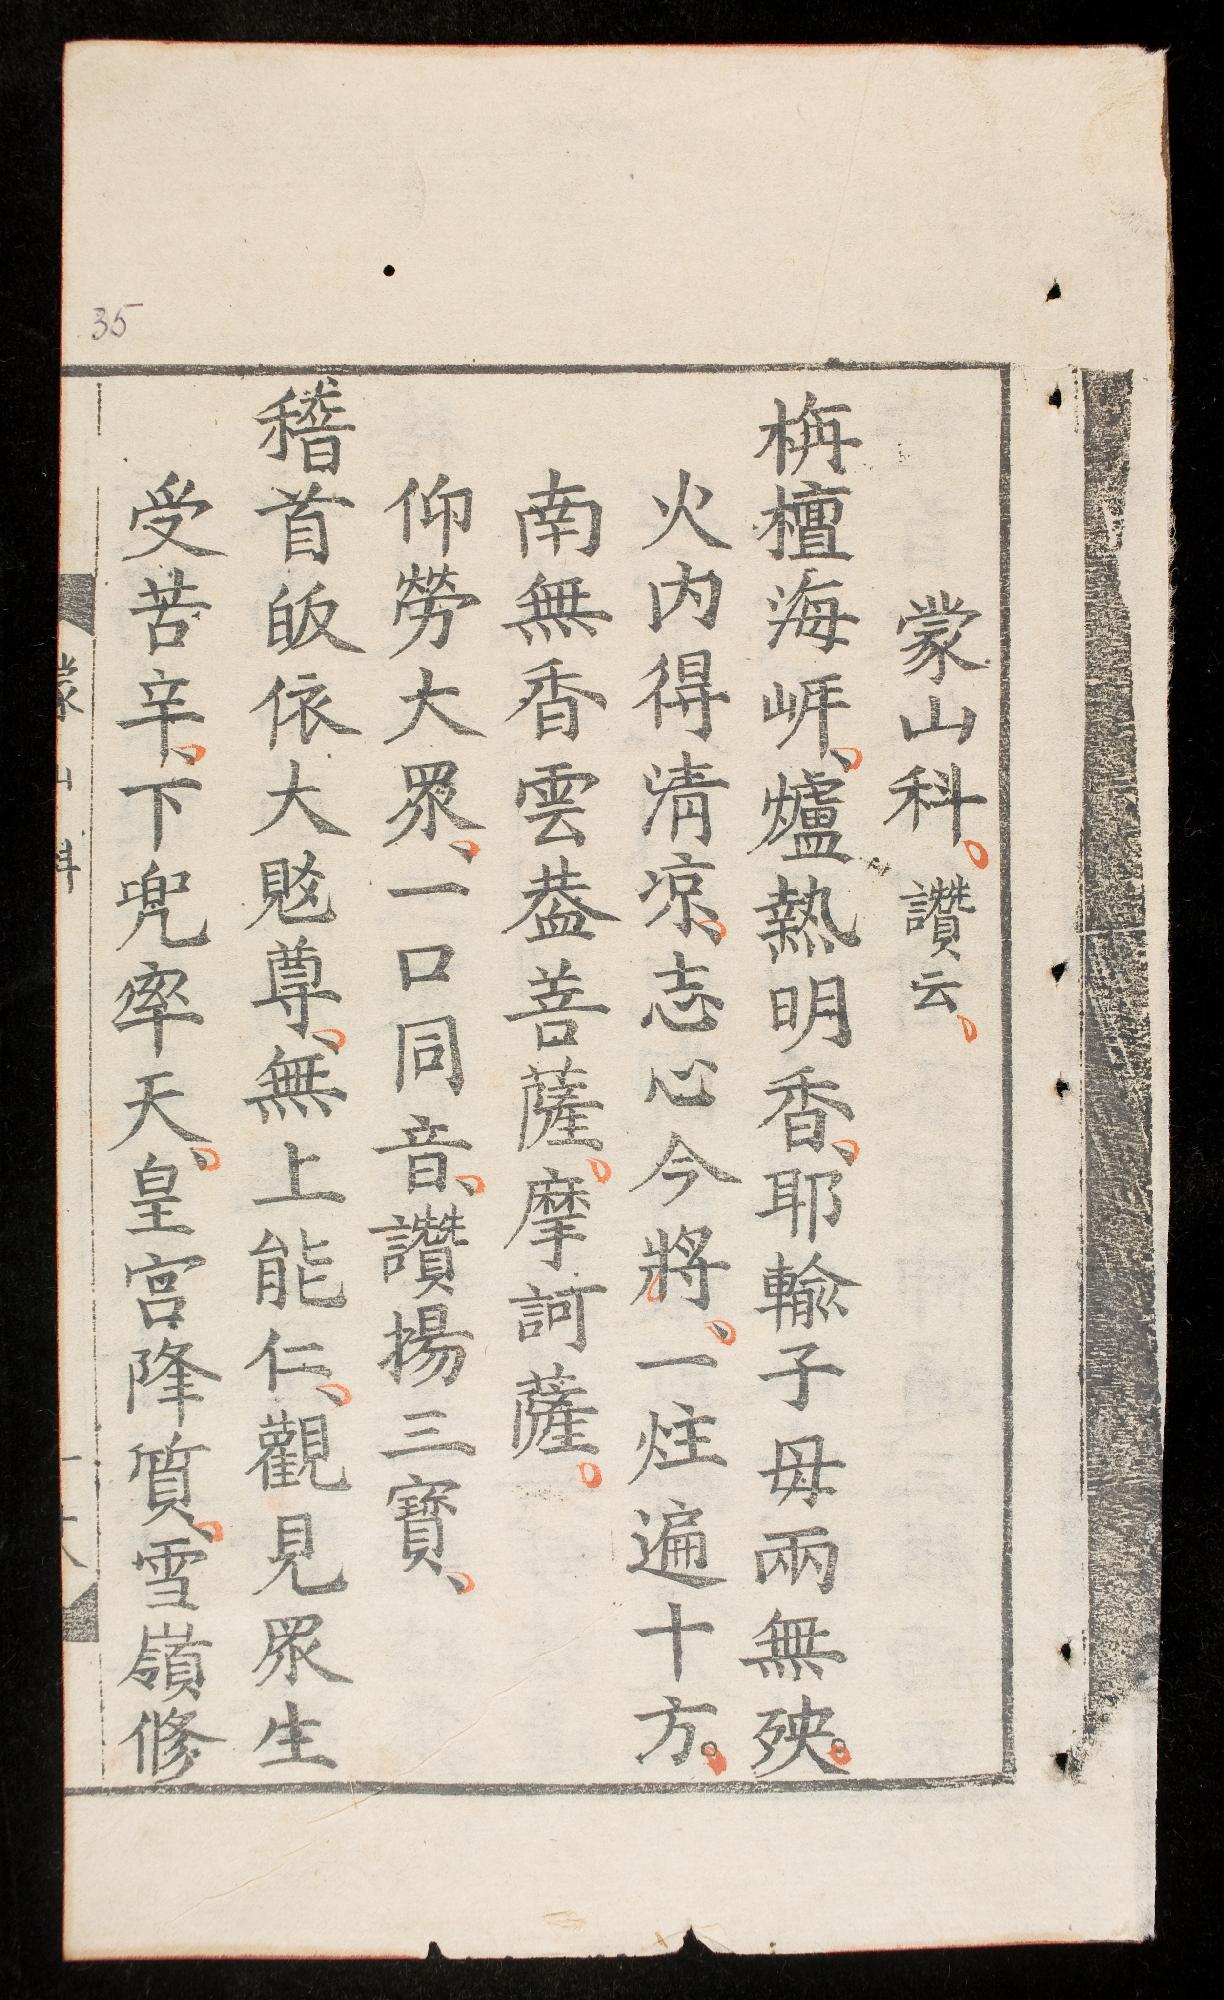 蒙山科。讚云。
栴檀海岍、爐熱明香、耶輸子母兩無殃。
火内得清凉、志心今將、一炷遍十方。
南無香雲葢菩薩。摩訶薩。
仰勞大眾、一口同音、讚揚三寶、
稽首皈依大𧵳尊、無上能仁、觀見眾生
受苦辛、下兜率天、皇宮降質、雪嶺修
蒙山科
35